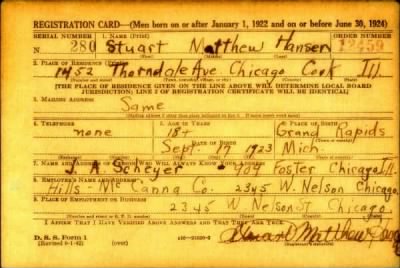 REGISTRATION CARD—(Men born on or after January 1, 1922 and on or before June 30, 1924)
SERIAL NUMBER 1. NAME (Print) ORDER NUMBER
N 280 Stuart Matthew Hansen 12459
2. PLACE OF RESIDENCE (Print)
1452 Thorndale Ave Chicago Cook Ill.
[THE PLACE OF RESIDENCE GIVEN ON THE LINE ABOVE WILL DETERMINE LOCAL BOARD
JURISDICTION; LINE 2 OF REGISTRATION CERTIFICATE WILL BE IDENTICAL]
3. MAILING ADDRESS
Same
4. TELEPHONE 5. AGE IN YEARS 6. PLACE OF BIRTH
none 18+ Grand Rapids
DATE OF BIRTH
Sept. 17 1923 Mich.
7. NAME AND ADDRESS OF PERSON WHO WILL ALWAYS KNOW YOUR ADDRESS
J. A. Scheyer 404 Foster Chicago Ill.
8. EMPLOYER'S NAME AND ADDRESS
Hills-McCanna Co. 2345 W. Nelson Chicago.
9. PLACE OF EMPLOYMENT OR BUSINESS
2345 W. Nelson St Chicago.
I AFFIRM THAT I HAVE VERIFIED ABOVE ANSWERS AND THAT THEY ARE TRUE.
D. S. S. Form 1
(Revised 6-1-42) (over) Stuart Matthew